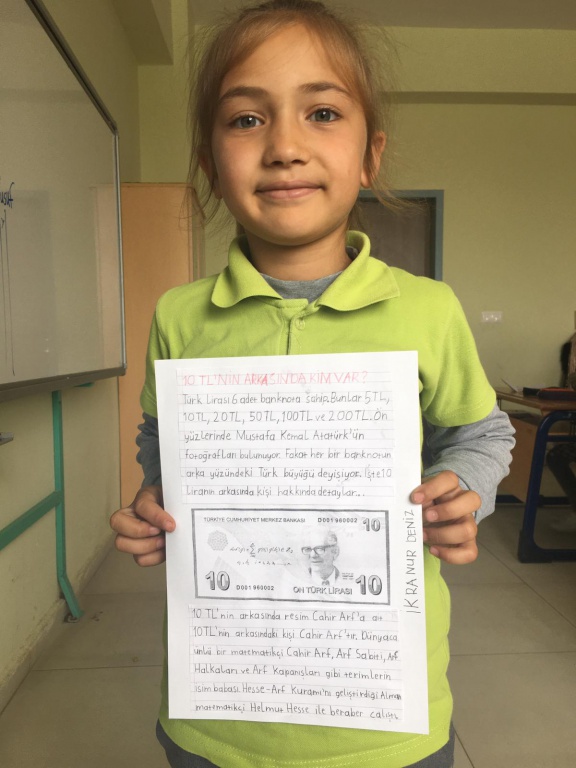 10 TL'NİN ARKASINDA KİM VAR?
Türk Lirası 6 adet banknora sahip. Bunlar 5TL,
10TL, 20TL, 50TL, 100TL ve 200TL. Ön
yüzlerinde Mustafa Kemal Atatürk'ün
fotoğrafları bulunuyor. Fakat her bir banknotun
arka yüzündeki Türk büyüğü değişiyor. İşte 10
Liranın arkasında kişi hakkında detaylar...
TÜRKİYE CUMHURİYET MERKEZ BANKASI D001 980002 10
10 D001 980002 ON TÜRK LİRASI 10
İKRANUR DENİZ
10 TL'nin arkasında resim Cahir Arf'a ait
10TL'nin arkasındaki kişi Cahir Arf'tır. Dünyaca
ünlü bir matematikçi Cahir Arf, Arf Sabiti, Arf
Halkaları ve Arf Kapanışları gibi terimlerin
isim babası Hesse-Arf Kuramı'nı geliştirdiği Alman
matematikçi Helmut Hesse ile beraber